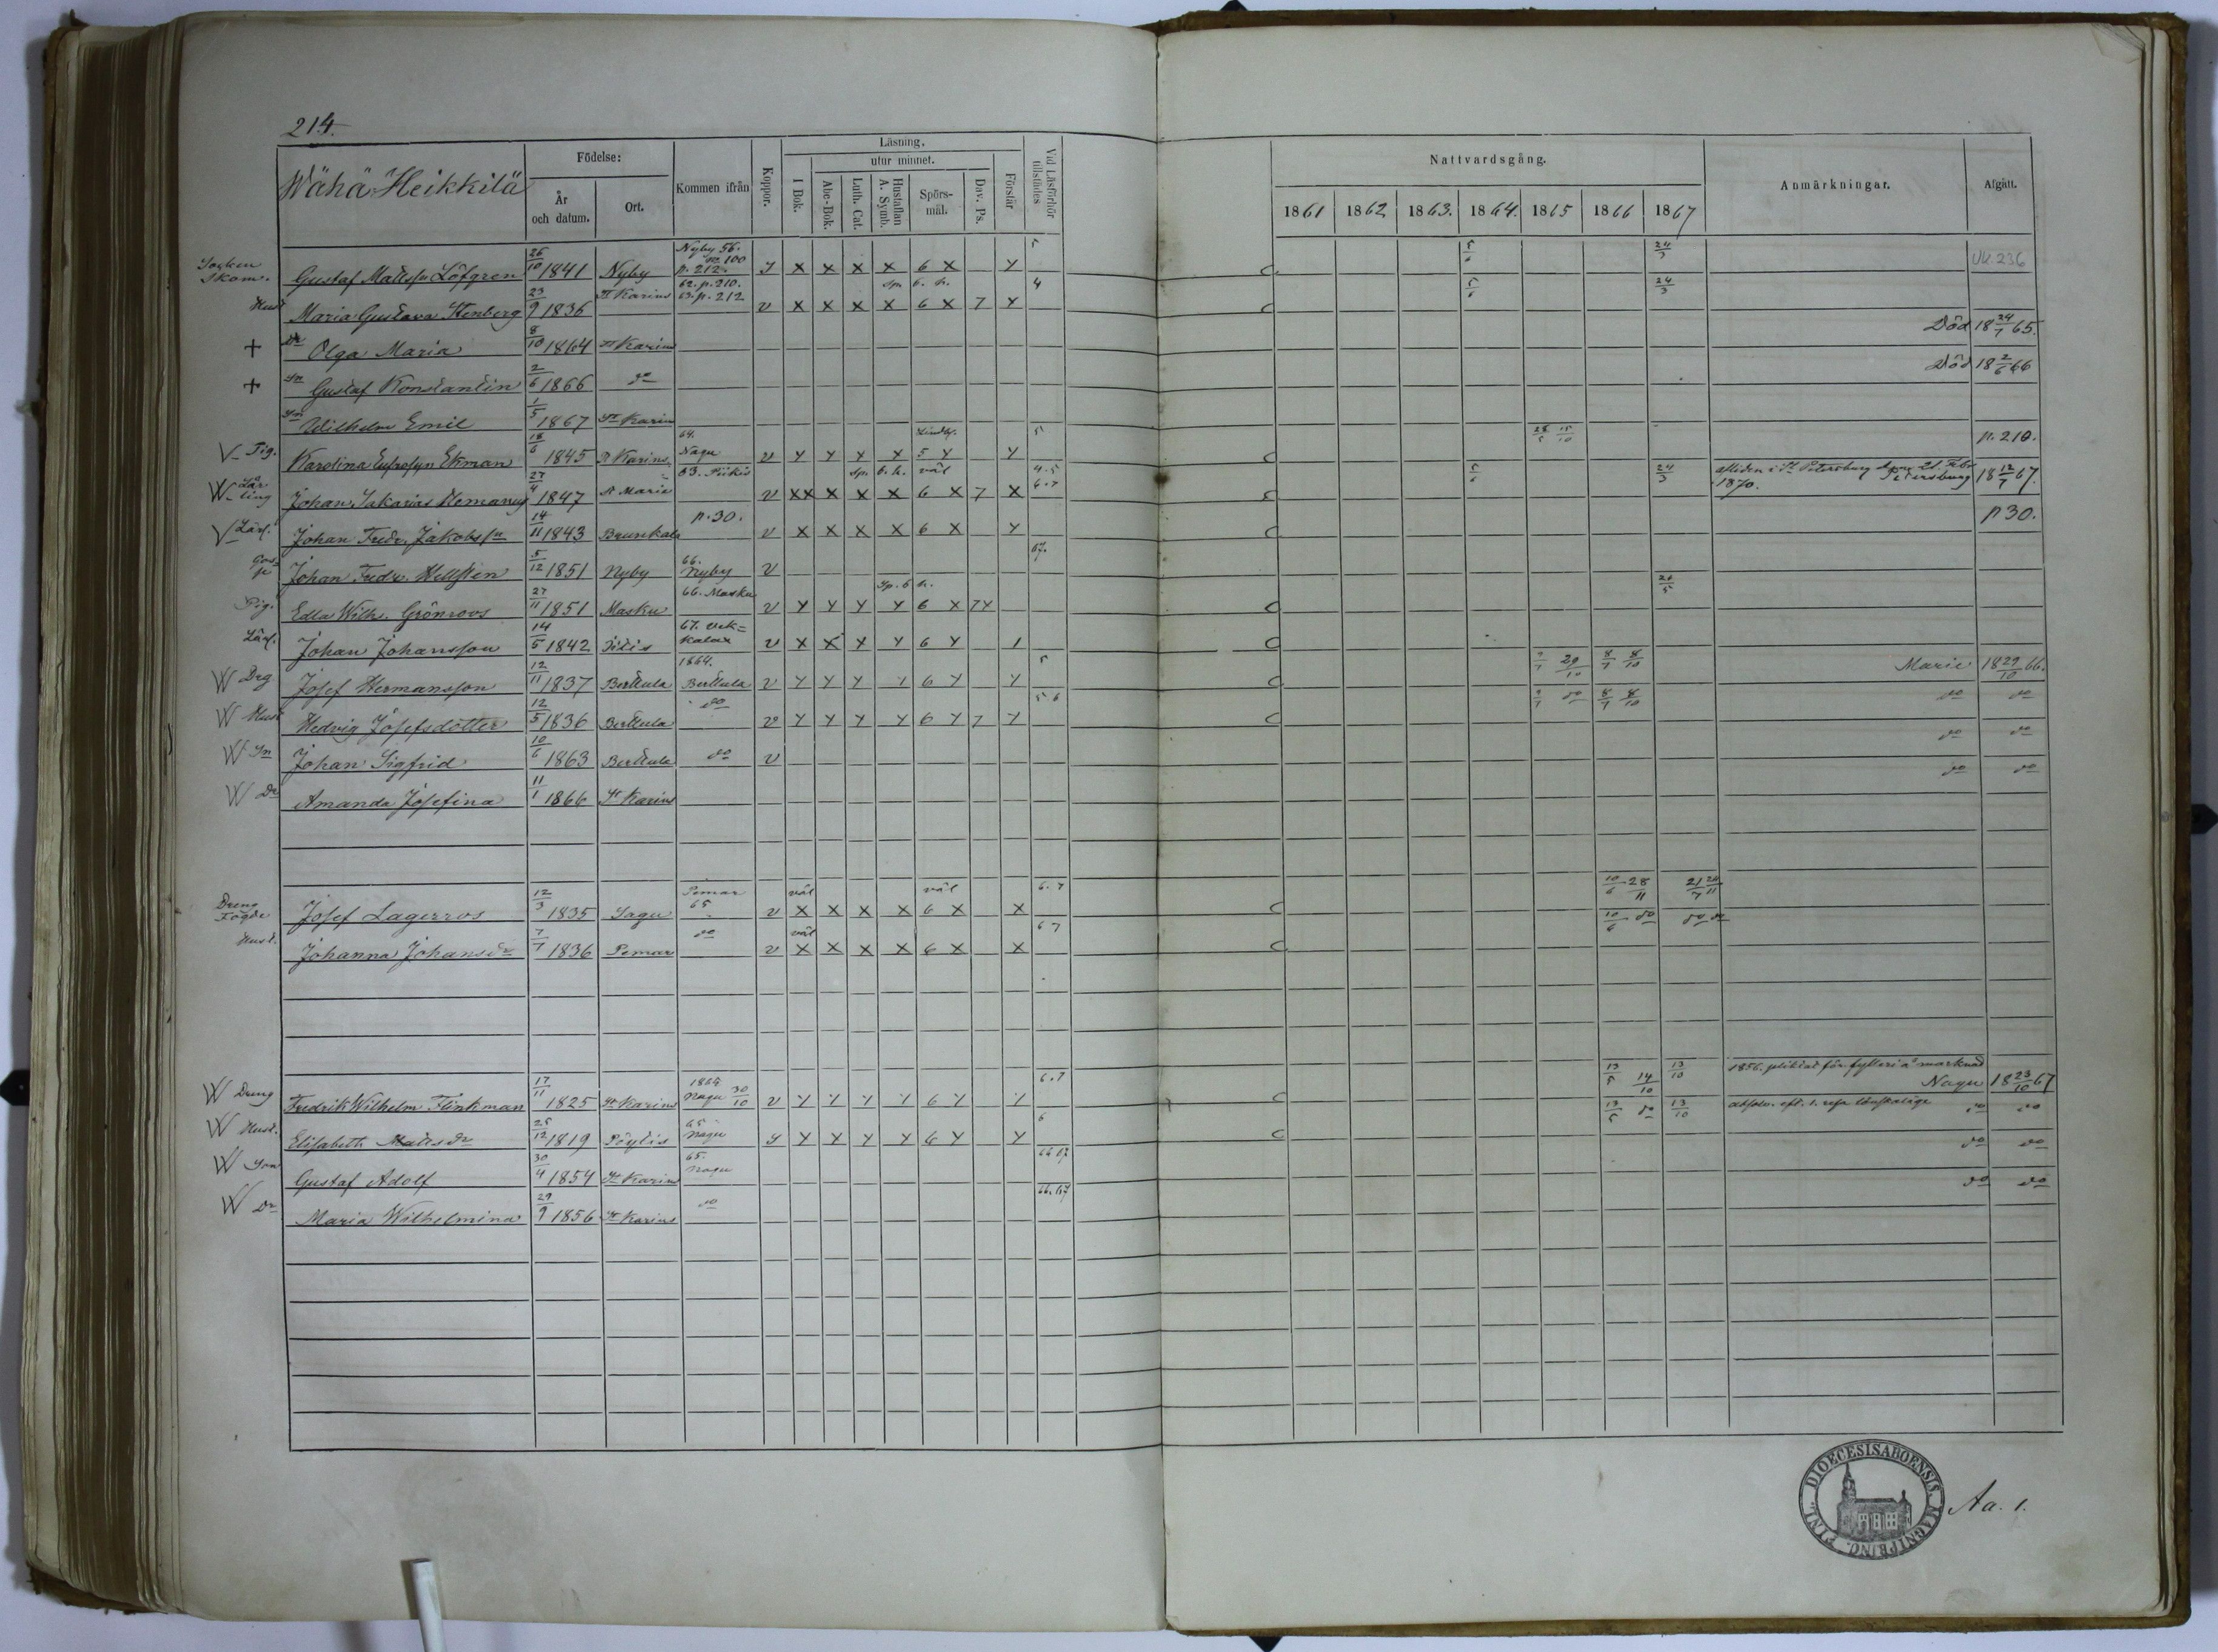 214.
Wähä Heikkilä
Födelse:
År och datum.
Ort.
Kommen ifrån
Koppor.
Läsning.
I Bok.
utur minnet.
Abc-Bok.
Luth. Cat.
Hustaflan A. Symb.
Spörs-mål.
Dav. Ps.
Förstår
Vid Läsförhör tillstädes
Nattvardsgång.
1861 1862 1863. 1864. 1865 1866 1867
Anmärkningar.
Afgått.
Socken Skom. Gustaf Matsson Löfgren 26/10 1841 Nyby Nyby 56. p. 212. x x x x 6 x y 5 C 5/6 24/3 Uk. 236
Hust Maria Gustava Stenberg 23/9 1836 St Karins 62. p. 210. 63. p. 212 v x x x x 6 x 7 y 4 C 5/6 24/3
+ Dr Olga Maria 8/10 1864 St Karins Död 18 24/7 65.
+ Sn Gustaf Konstantin 2/6 1866 do Död 18 2/6 66
Sn Wilhelm Emil 1/5 1867 St Karins
V Pig. Karolina Eufrosyn Ekman 18/6 1845 St Karins 64. Nagu v y y y x 5 y y 5 C p. 210.
W Lärling Johan Sakarias 27/4 1847 St Marie 63. Piikis v xx x x x 6 x 7 x 4.5 6.7 C 5/6 24/3 afliden i St Petersburg 21. Febr 1870. Petersburg 18 12/7 67.
V Lärl. Johan Fredr. Jakobssn 14/11 1843 Brunkala p. 30. v x x x x 6 x y C p 30.
Gosse Johan Fredr. Hellsten 5/12 1851 Nyby 66. Nyby v 67.
Pig. Edla Wilhs. Grönroos 27/11 1851 Masku 66. Masku v y y y y 6 x 7x C
Lärl. Johan Johansson 14/5 1842 67. v x x y y 6 y C
W Drg Josef Hermansson 12/11 1837 Berttula 1864. Berttula v y y y y 6 y y 5 C 29/10 8/7 8/10 Marie 18 29/10 66.
W Hust Hedvig Josefsdotter 12/5 1836 Berttula do v y y y y 6 y 7 y 5 6 C do 8/7 8/10 do do
W Sn Johan Sigfrid 10/6 1863 Berttula do v do do
W Dr Amanda Josefina 11/1 1866 St Karins do do
Dreng Fogde Josef Lagerros 12/3 1835 Sagu Pemar 65 v väl x x x x väl 6 x x 6.7 C 10/6 28/11 21/7 24/11
Hust. Johanna Johansdr 7/7 1836 Pemar do v väl x x x x 6 x x 6 7 C 10/6 do do do
W Dreng Fredrik Wilhelm Flinkman 17/11 1825 St Karins Nagu 30/10 v y y y y 6 y y 6.7 C 13/5 14/10 13/10 1856. pliktat för fylleri å marknad Nagu 18 23/10 67
W Hust. Elisabeth Matsdr 25/12 1819 Pöytis 65 Nagu y y y y 6 y y 6 C 13/5 do 13/10 do do
W Son Gustaf Adolf 30/4 1854 St Karins 65. Nagu 66 67 do do
W Dr Maria Wilhelmina 29/9 1856 St Karins do 66.67 do do
DIOECESIS ABOENSIS. MAGNI PRINC. FINL.
Aa. 1.